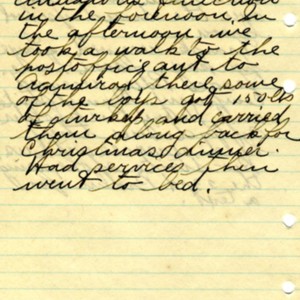 in the forenoon, in
the afternoon we
took a walk to the
postoffice out to
Admiral there some
of the boys got 150 lbs
of turkey and carried
them along back for
Christmas dinner.
Had services then
went to bed.